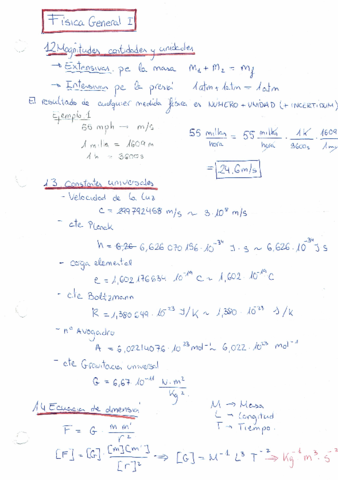 Física General I
1.2 Magnitudes, cantidades y unidades
→ Extensivas pe la masa M₁ + M₂ = Mf
→ Intensivas pe la presió 1atm + 1atm = 1atm
El resultado de cualquier medida física es NÚMERO + UNIDAD (+ INCERTIDUM)
Ejemplo 1
55 mph → m/s
1 milla = 1609m
1h = 3600s
55 milla/hora = 55 milla/hora · 1h/3600s · 1609/1
= 24,6 m/s
1.3 Constantes universales
- Velocidad de la luz
c = 299792458 m/s ~ 3·10⁸ m/s
- cte Planck
h = 6,626070 · 10⁻³⁴ J·s ~ 6,626·10⁻³⁴ J s
- carga elemental
e = 1,602176634 · 10⁻¹⁹ C ~ 1,602 · 10⁻¹⁹ C
- cte Boltzmann
K = 1,380649 · 10⁻²³ J/K ~ 1,380 · 10⁻²³ J/K
- nº Avogadro
A = 6,02214076 · 10²³ mol⁻¹ ~ 6,022 · 10²³ mol⁻¹
- cte Gravitación universal
G = 6,67 · 10⁻¹¹ N·m²/Kg²
1.4 Ecuación de dimensió
M → Masa
L → Longitud
T → Tiempo
F = G m m'/r²
[F] = [G] [m][m']/[r]² ⇒ [G] = M⁻¹ L³ T⁻² → Kg⁻¹ m³ · s⁻²